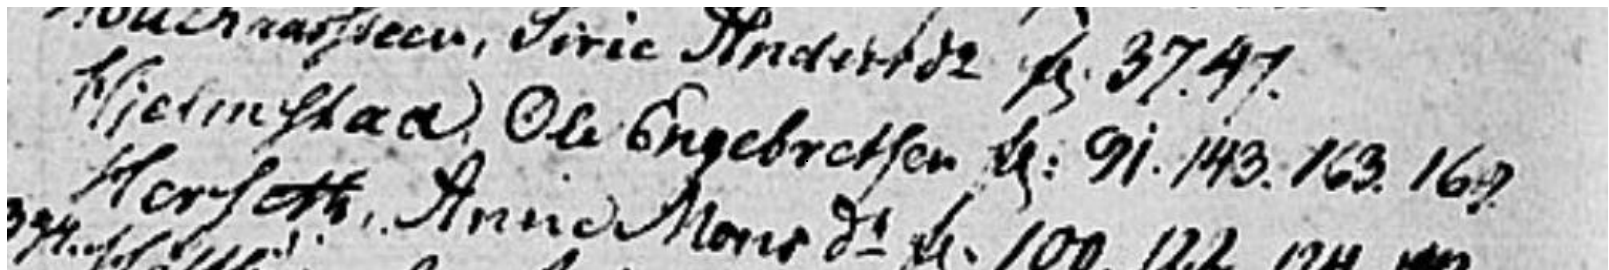 Sirie Anders d2 fg. 37.47.
Hjelmstad, Ole Engebretsen fg: 91. 143. 163. 167
Herseth, Anne Mons dt fg. 100. 122. 124.
394.